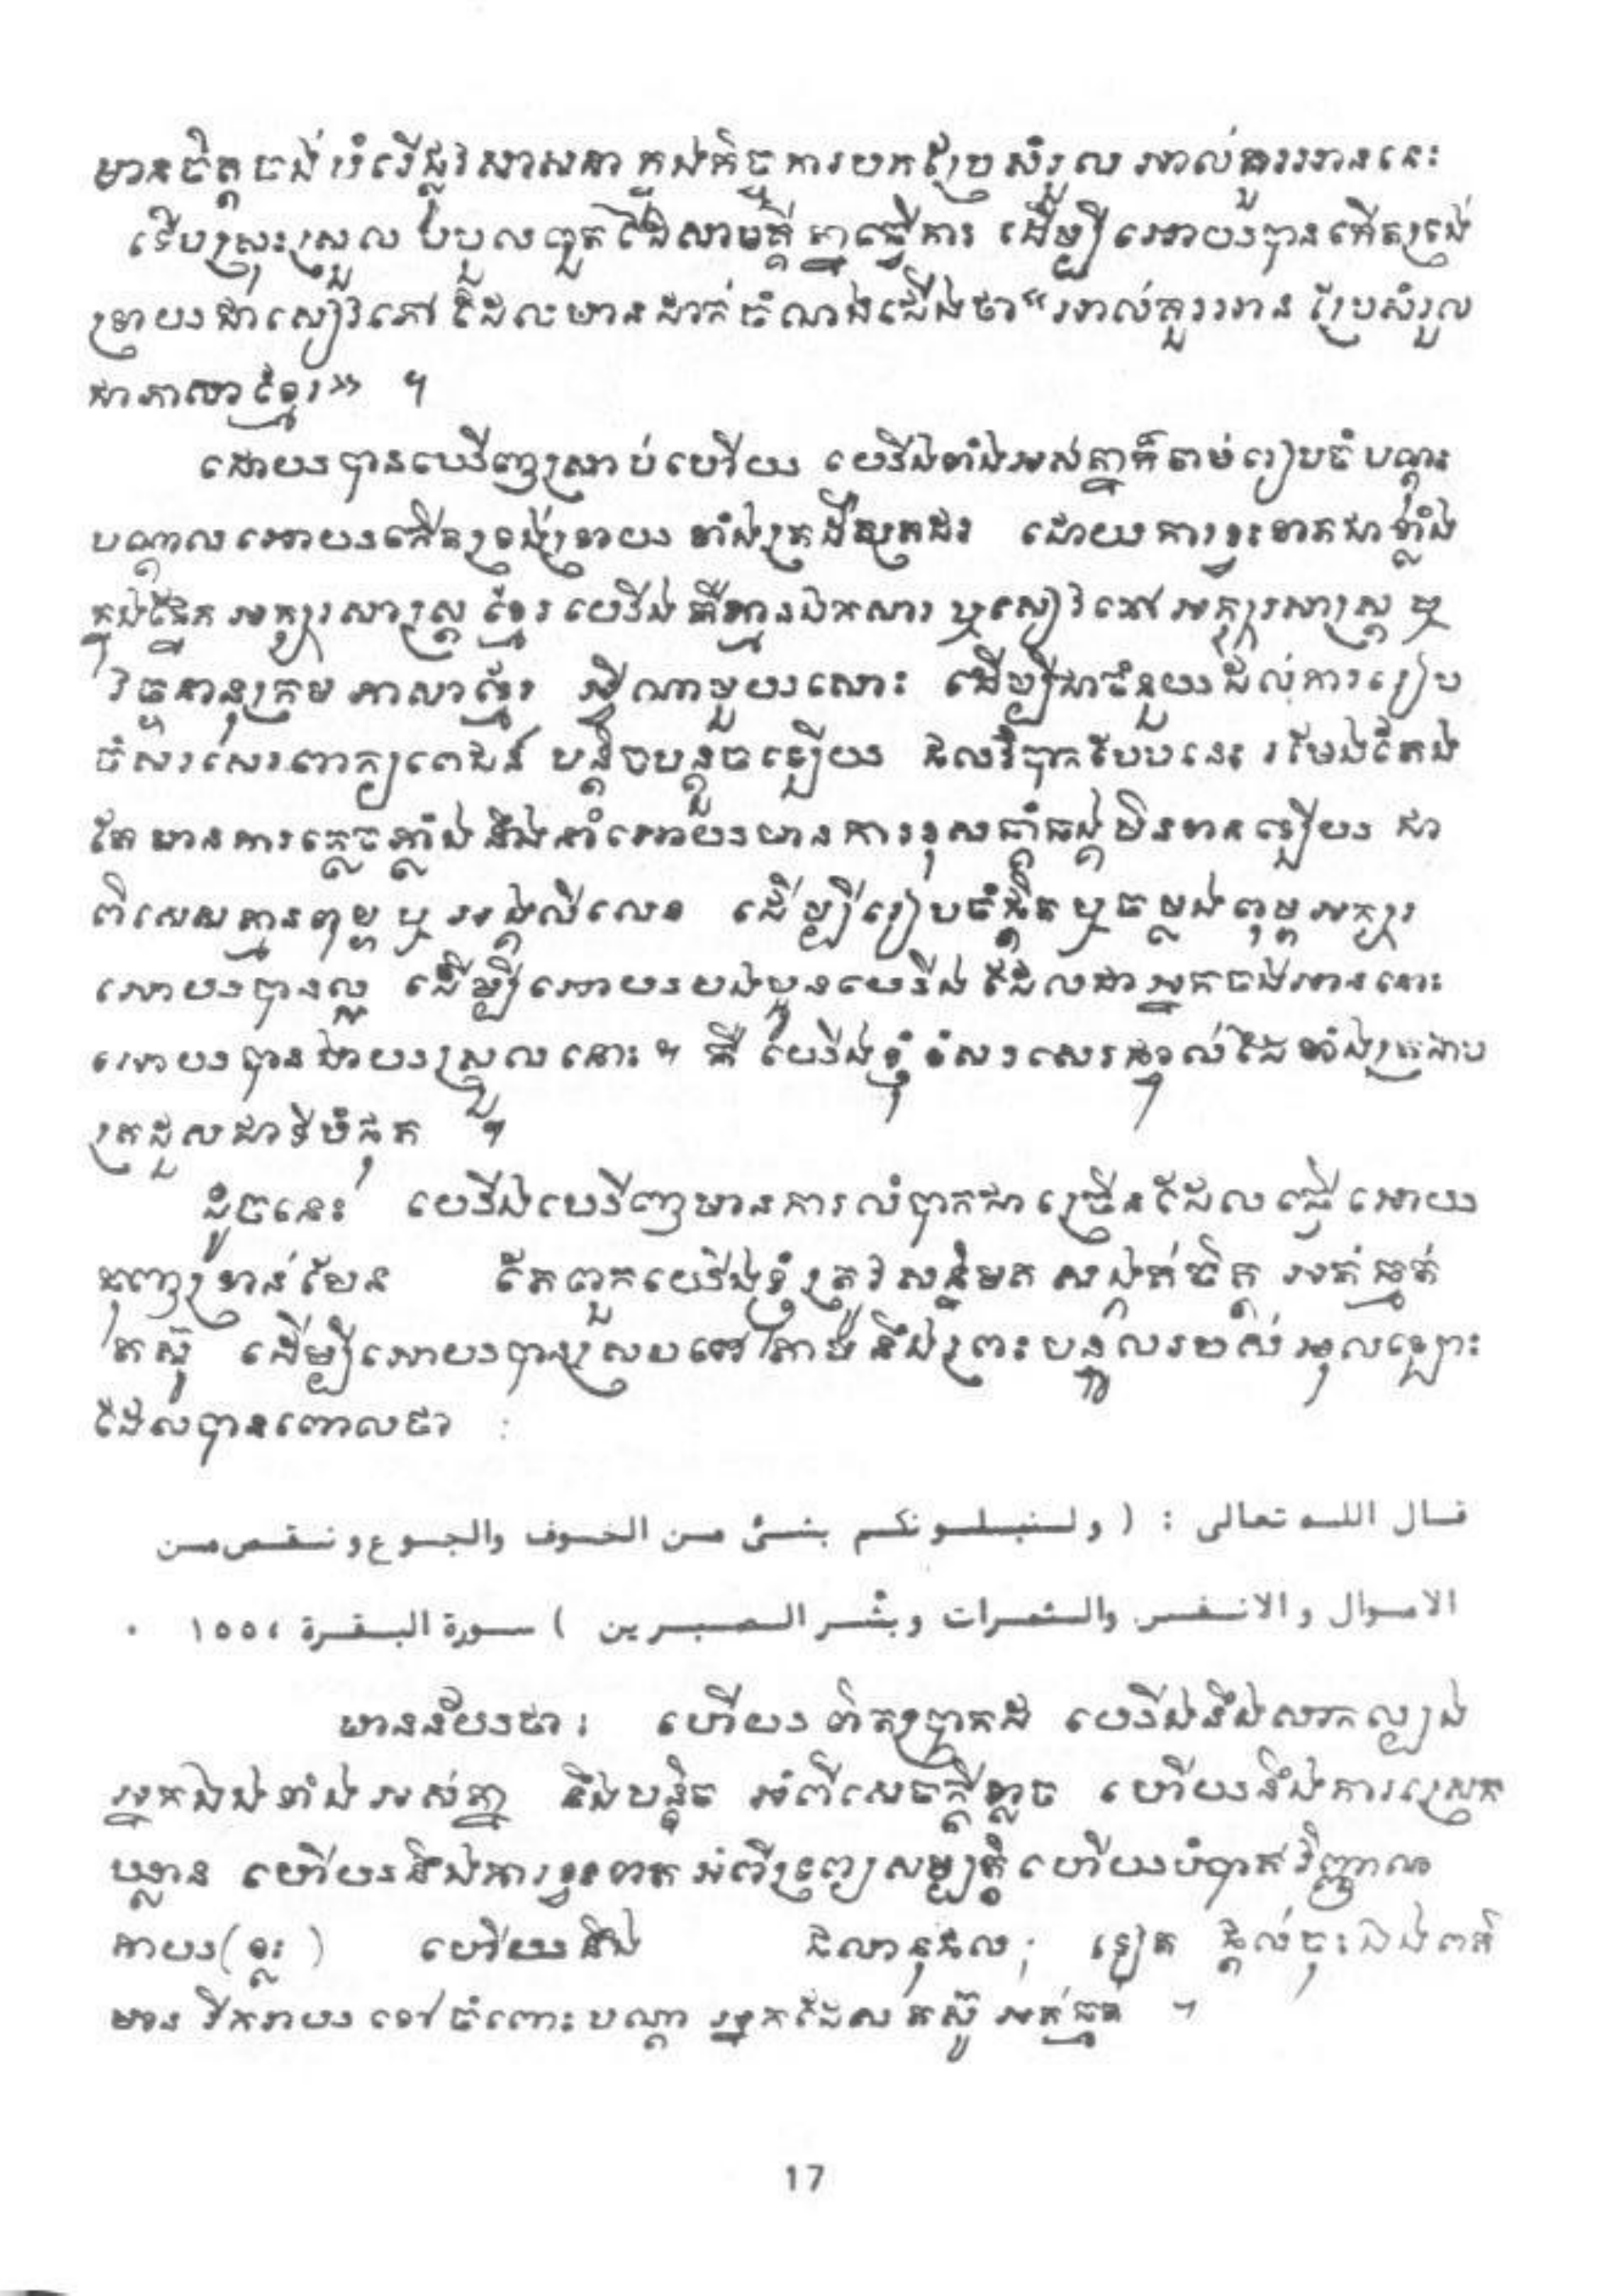 មានចិត្តចង់បំរើផ្លូវសាសនា ក្នុងកិច្ចការបកប្រែសំរួល អាល់គួរអាននេះ
ទើបស្រុះស្រួល បបួលពួតដៃសាមគ្គីគ្នាធ្វើការ ដើម្បីអោយបានកើតទ្រង់
ទ្រាយជាសៀវភៅ ដែលមានដាក់ចំណងជើងថា «អាល់គួរអាន ប្រែសំរួល
ជាភាសាខ្មែរ» ។
ដោយបានឃើញស្រាប់ហើយ យើងទាំងអស់គ្នាក៏ចាប់រៀបចំបណ្តុះ
បណ្តាលអោយកើតទ្រង់ទ្រាយ ទាំងត្រដឹតត្រដរ ដោយការខ្វះខាតជាខ្លាំង
ក្នុងផ្នែកអក្សរសាស្ត្រខ្មែរ យើងគឺគ្មានឯកសារ ឬសៀវភៅអក្សរសាស្ត្រ ឬ
វចនានុក្រម ភាសាខ្មែរ អ្វីណាមួយសោះ ដើម្បីជាជំនួយដល់ការរៀប
ចំសរសេរពាក្យពេជន៍ បន្តិចបន្តួចឡើយ ផលវិបាកបែបនេះ រមែងតែង
តែមានការភ្លេចភ្លាំង នឹងនាំអោយមានការខុសឆ្គាំឆ្គងមិនខានឡើយ ជា
ពិសេសគ្មានពុម្ព ឬអង្គុលីលេខ ដើម្បីរៀបចំផ្តិតឬចម្លងពុម្ពអក្សរ
អោយបានល្អ ដើម្បីអោយបងប្អូនយើង ដែលជាអ្នកចង់អាននោះ
អោយបានងាយស្រួលនោះ។ គឺ យើងខ្ញុំ សរសេរផ្ទាល់ដៃ ទាំងត្រដាប
ត្រដួសជាទីបំផុត ។
ដូចនេះ យើងឃើញមានការលំបាកជាច្រើនដែលធ្វើអោយ
ធុញទ្រាន់មែន តែពួកយើងខ្ញុំត្រូវសន្និមត សង្កត់ចិត្ត អត់ធ្មត់
តស៊ូ ដើម្បីអោយបានស្របទៅតាមនឹងព្រះបន្ទូលរបស់ អុលឡោះ
ដែលបានពោលថា :
قال الله تعالى : ( ولنبلونكم بشئ من الخوف والجوع ونقص من
الاموال والانفس والثمرات وبشر الصبرين ) سورة البقرة ، ١٥٥ .
មានន័យថា: ហើយពិតប្រាកដ យើងនឹងសាកល្បង
អ្នកឯងទាំងអស់គ្នា នឹងបន្តិច អំពីសេចក្តីខ្លាច ហើយនឹងការស្រេក
ឃ្លាន ហើយនឹងការខ្វះខាត អំពីទ្រព្យសម្បត្តិ ហើយបំបាត់វិញ្ញាណ
កាយ(ខ្លះ) ហើយនឹង ផលានុផល; ទៀត ផ្តល់ចុះឯងពត៌
មាន រីករាយ ទៅចំពោះបណ្តា អ្នកដែលតស៊ូ អត់ធ្មត់ ។
17